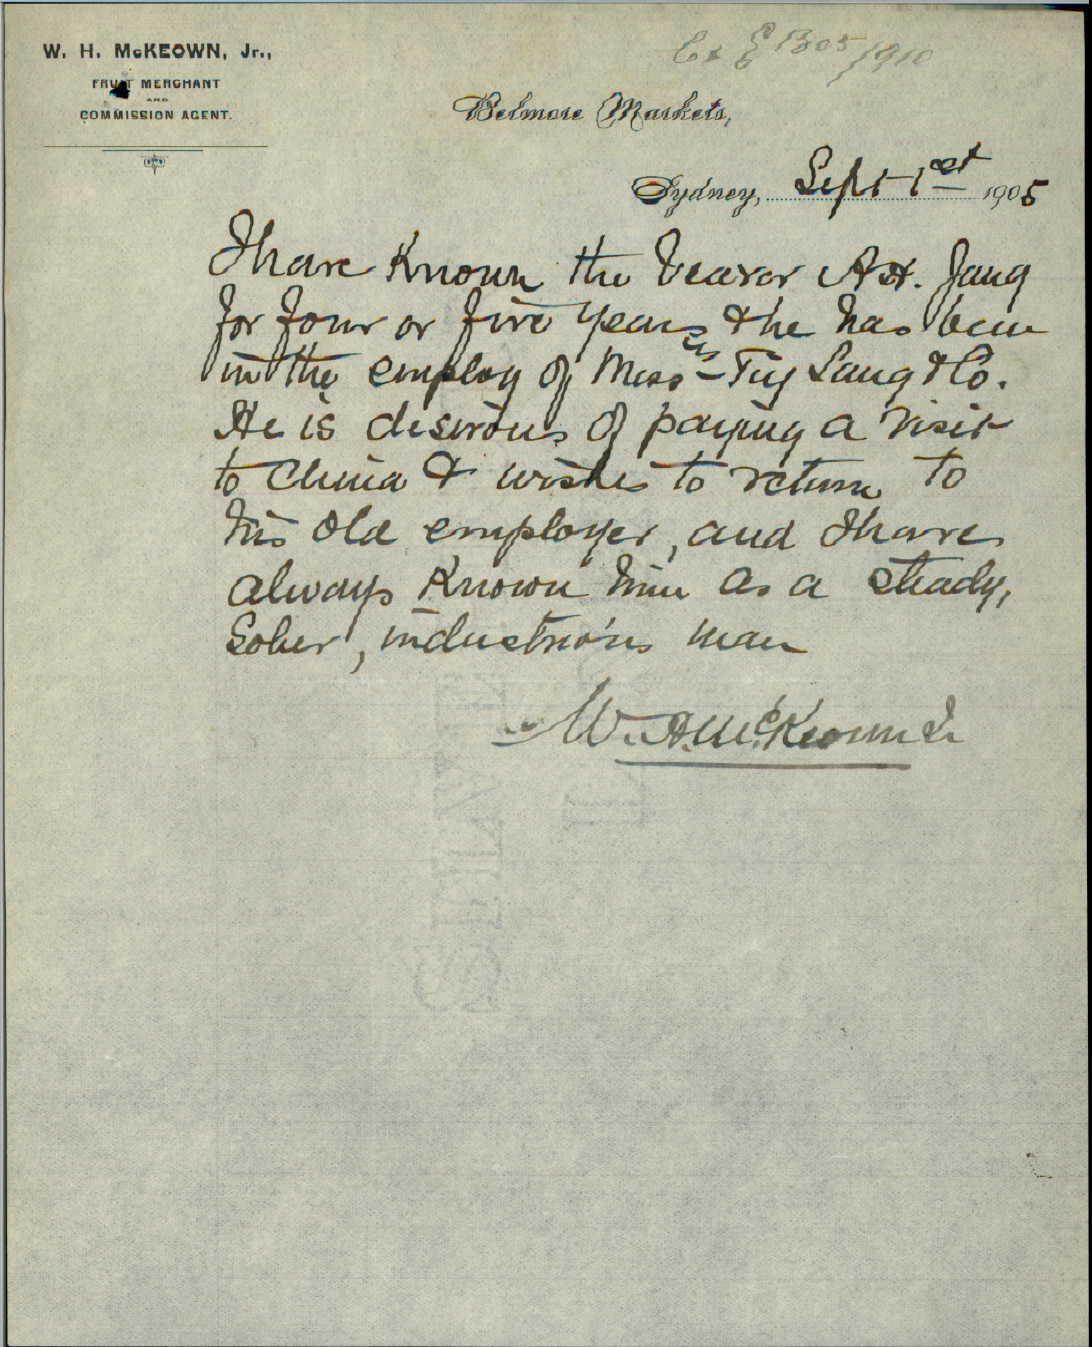 W. H. McKEOWN, Jr.,
FRUIT MERCHANT
AND
COMMISSION AGENT.
Belmore Markets,
Sydney, Sept 1st 1905
I have known the bearer Ah. Jang
for four or five years & he has been
in the employ of Messrs Tiy Sang & Co.
He is desirous of paying a visit
to China & wishes to return to
his old employer, and I have
always known him as a steady,
sober, industrious man
W. H. McKeown Jr